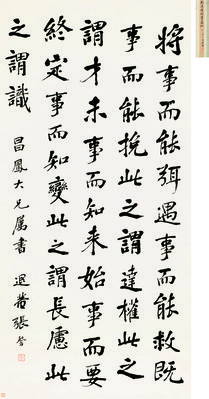 將事而能弭遇事而能救既
事而能挽此之謂達權此之
謂才未事而知來始事而要
終定事而知變此之謂長慮此
之謂識
昌鳳大兄屬書 退菴張詧